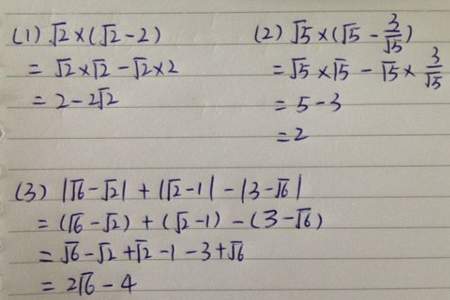 (1) √2×(√2-2)
= √2×√2-√2×2
= 2-2√2
(2) √5×(√5-3/√5)
= √5×√5-√5×3/√5
= 5-3
= 2
(3) |√6-√2|+|√2-1|-|3-√6|
= (√6-√2)+(√2-1)-(3-√6)
= √6-√2+√2-1-3+√6
= 2√6-4